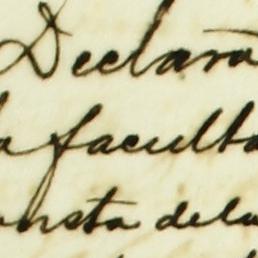 Declara
a faculta
onsta dela